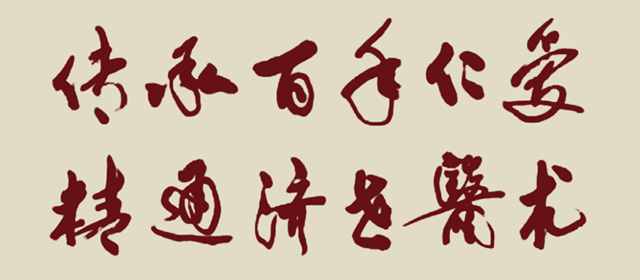 传承百年仁爱
精通济世醫术